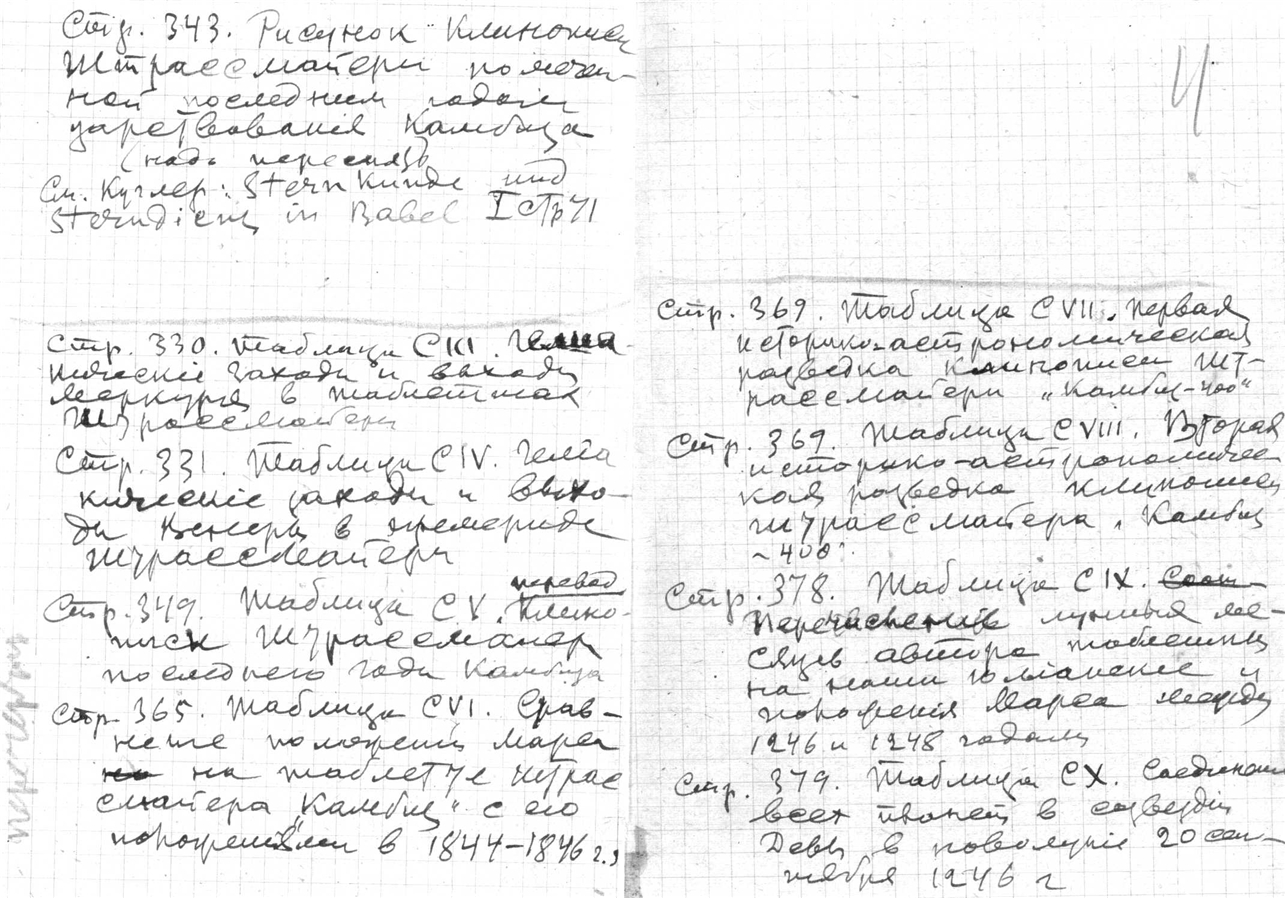 Стр. 343. Рисунок Клинописи
Штрассмайера помечен-
ной последним годом
царствованiя Камбиза
(надо переснять)
См. Куглер: Sternkunde und
Sterndienst in Babel I стр 71
Стр. 330. Таблица CIII. Гелiа-
кическiе заходы и выходы
Меркурiя в таблетках
Штрассмайера
Стр. 331. Таблица CIV. Гелiа
кическiе заходы и выхо-
ды Венеры в эфемериде
Штрассмайера
Стр. 349. Таблица CV. перевод Клино-
писи Штрассмайера
последнего года Камбиза
Стр. 365. Таблица CVI. Срав-
ненiе положенiй Марса
на на таблетке Штрас
смайера „Камбиз" с его
положенiями в 1844-1846 г.
перечерт
4
Стр. 369. Таблица CVII. Первая
историко-астрономическая
разведка Клинописи Шт-
рассмайера „Камбиз-400"
Стр. 369. Таблица CVIII. Вторая
историко-астрономичес-
кая разведка клинописи
Штрассмайера, Камбиз
-400".
Стр. 378. Таблица CIX. Соот-
Перечисленiе лунных ме-
сяцев автора таблетки
на наши юлiанскiе и
положенiя Марса между
1246 и 1248 годами
Стр. 379. Таблица CX. Соединенiе
всех планет в созвездiи
Девы в новолунiе 20 сен-
тября 1246 г